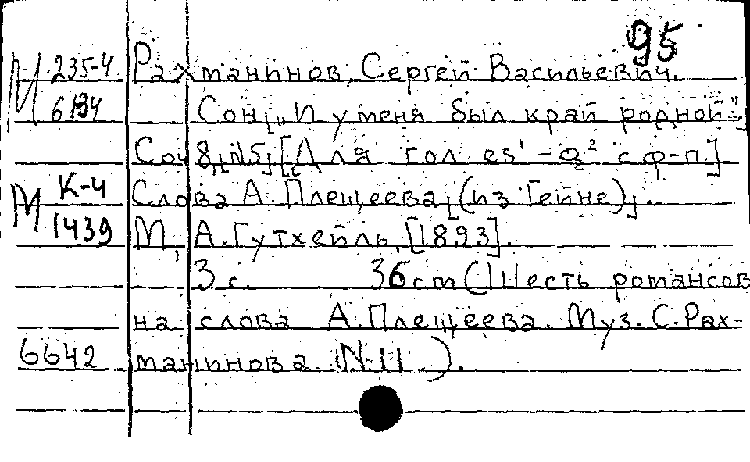 95
М 235-4 Рахманинов, Сергей Васильевич.
6194 Сон [„И у меня был край родной"]
Соч. 8, N5, [Для гол. es¹-g² с ф-п.]
М К-4 Слова А. Плещеева, [(из Гейне)].
1439 М., А. Гутхейль, [1893].
3 с. 36 cm (Шесть романсов
на слова А. Плещеева. Муз. С. Рах-
6642 манинова. (N-11 ).